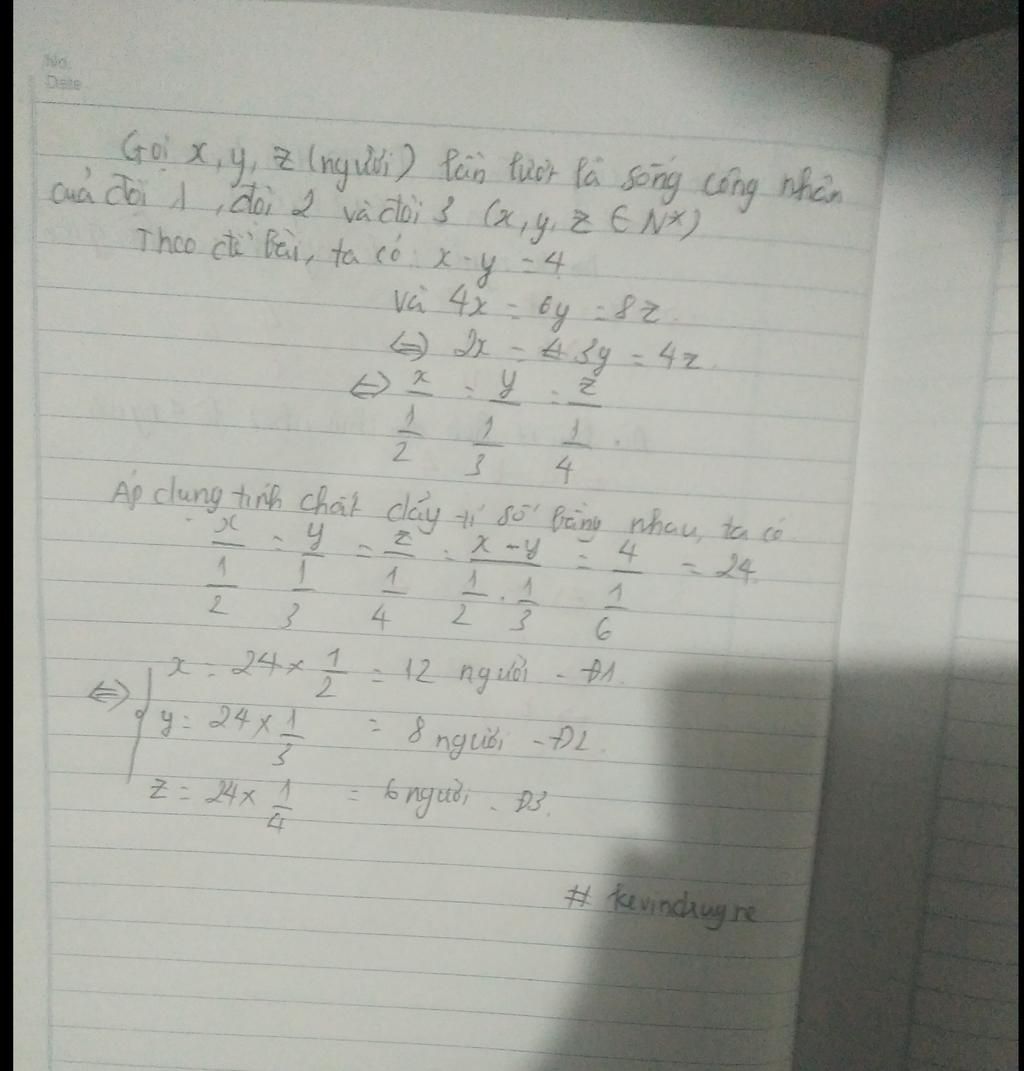 No.
Date
Gọi x, y, z (người) lần lượt là sống công nhân
của đội 1, đội 2 và đội 3 (x, y, z ∈ N*)
Theo đề bài, ta có: x - y = 4
và 4x = 6y = 8z
⇔ 2x = 3y = 4z.
⇔ x/(1/2) = y/(1/3) = z/(1/4)
Áp dụng tính chất dãy tỉ số bằng nhau, ta có
x/(1/2) = y/(1/3) = z/(1/4) = (x - y)/(1/2 - 1/3) = 4/(1/6) = 24
x = 24 × 1/2 = 12 người - Đ1
⇔ y = 24 × 1/3 = 8 người - Đ2.
z = 24 × 1/4 = 6 người - Đ3.
# kevindrugne